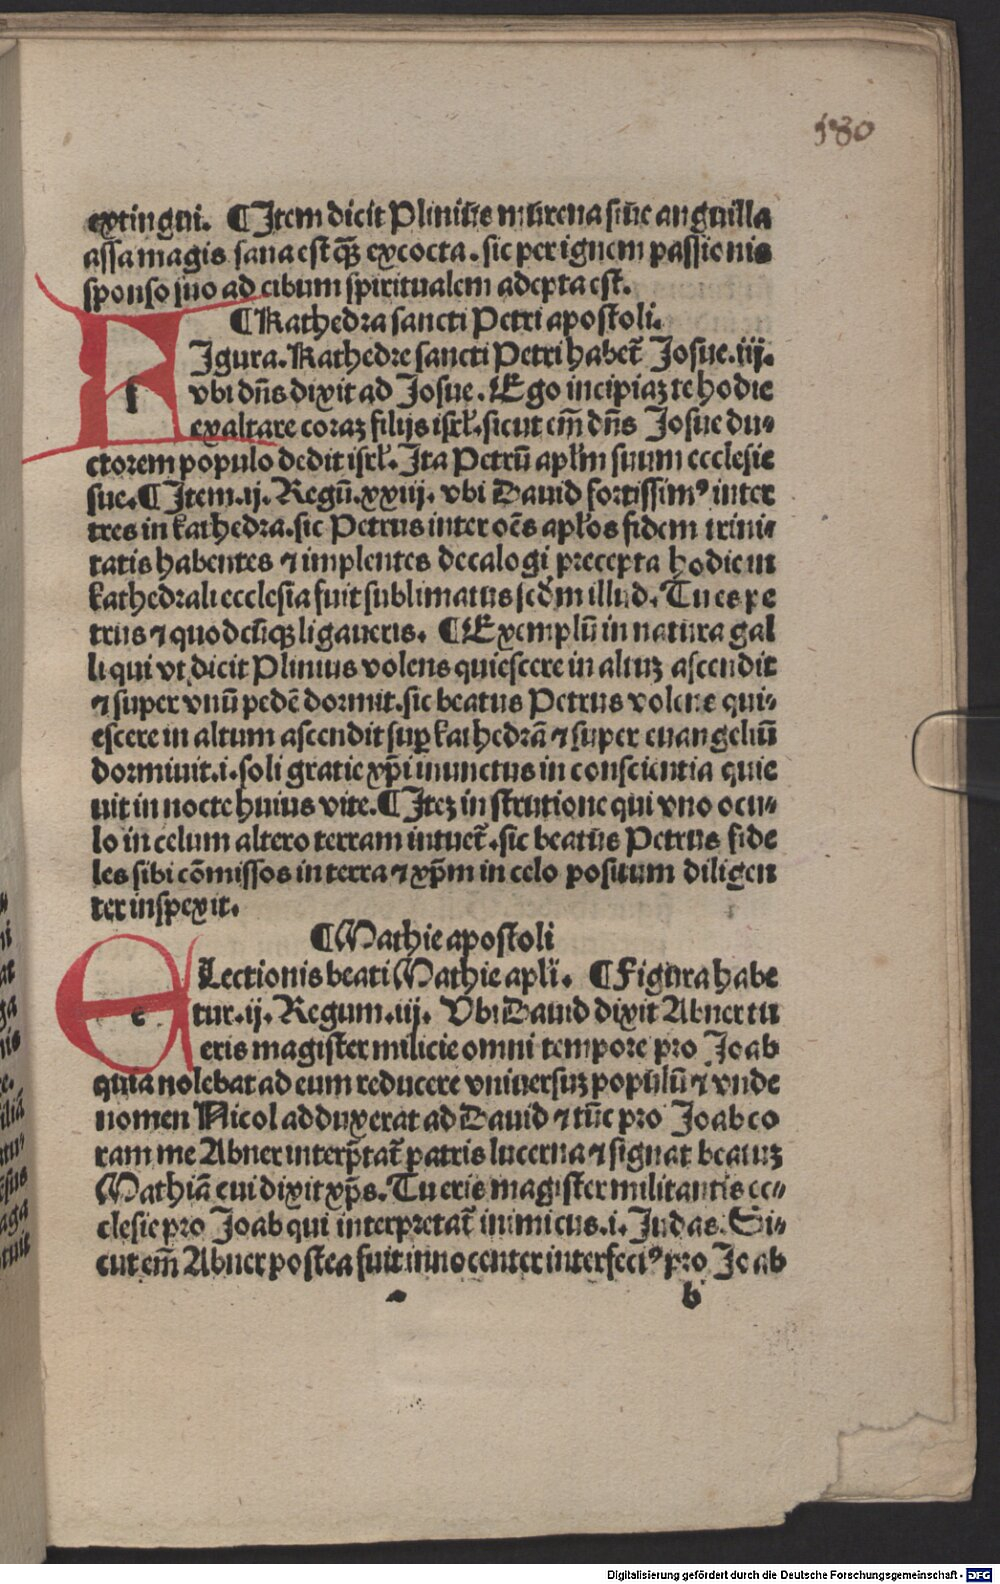 180
extingui. ¶ Item dicit Plinius murena siue anguilla
assa magis sana est qꝫ excocta. sic per ignem passionis
sponso suo ad cibum spiritualem adepta est.
¶ Kathedra sancti Petri apostoli.
FIgura. Kathedre sancti Petri habet᷑ Josue. iij.
vbi dn̄s dixit ad Josue. Ego incipiaꝫ te hodie
exaltare coraꝫ filijs isrl̕. sicut em̄ dn̄s Josue du⸗
ctorem populo dedit isrl̕. Ita Petrū apl̕m suum ecclesie
sue. ¶ Item. ij. Regū. xxiij. vbi Dauid fortissimꝰ inter
tres in kathedra. sic Petrus inter oēs apl̕os fidem trini⸗
tatis habentes ⁊ implentes decalogi precepta hodie in
kathedrali ecclesia fuit sublimatus scd̕m illud. Tu es pe
trus ⁊ quodcūqꝫ ligaueris. ¶ Exemplū in natura gal
li qui vt dicit Plinius volens quiescere in altuꝫ ascendit
⁊ super vnū pedē dormit. sic beatus Petrus volens qui⸗
escere in altum ascendit suꝑ kathedrā ⁊ super euangeliū
dormiuit. i. soli gratie xp̄i inunctus in conscientia quie
uit in nocte huius vite. ¶ Iteꝫ in strutione qui vno ocu⸗
lo in celum altero terram intuet᷑. sic beatus Petrus fide
les sibi cōmissos in terra ⁊ xp̄m in celo positum diligen
ter inspexit.
¶ Mathie apostoli
ELectionis beati Mathie apl̕i. ¶ Figura habe
tur. ij. Regum. iij. Vbi Dauid dixit Abner tu
eris magister milicie omni tempore pro Joab
quia nolebat ad eum reducere vniuersuꝫ populū ⁊ vnde
nomen Nicol adduxerat ad Dauid ⁊ tūc pro Joab co
ram me Abner interp̄tat᷑ patris lucerna ⁊ signat beatuꝫ
Mathiā cui dixit xp̄s. Tu eris magister militantis ec⸗
clesie pro Joab qui interpretat᷑ inimicus. i. Judas. Si⸗
cut em̄ Abner postea fuit innocenter interfectꝰ pro Joab
b
Digitalisierung gefördert durch die Deutsche Forschungsgemeinschaft - DFG